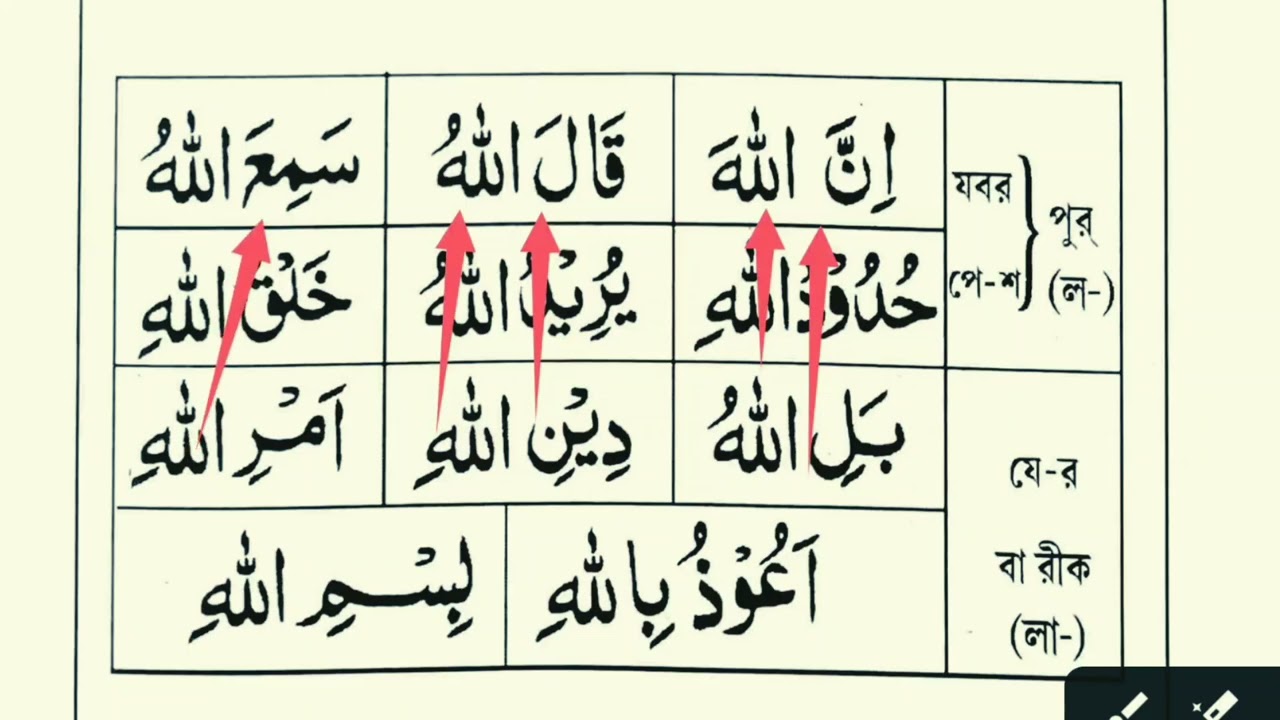 যবর
পে-শ
পুর্
(ল-)
اِنَّ اللهَ قَالَ اللهُ سَمِعَ اللهُ
حُدُوْدُ اللهِ يُرِيْدُ اللهُ خَلْقُ اللهِ
যে-র
বা রীক
(লা-)
بَلِ اللهُ دِيْنِ اللهِ اَمْرِ اللهِ
اَعُوْذُ بِاللهِ بِسْمِ اللهِ